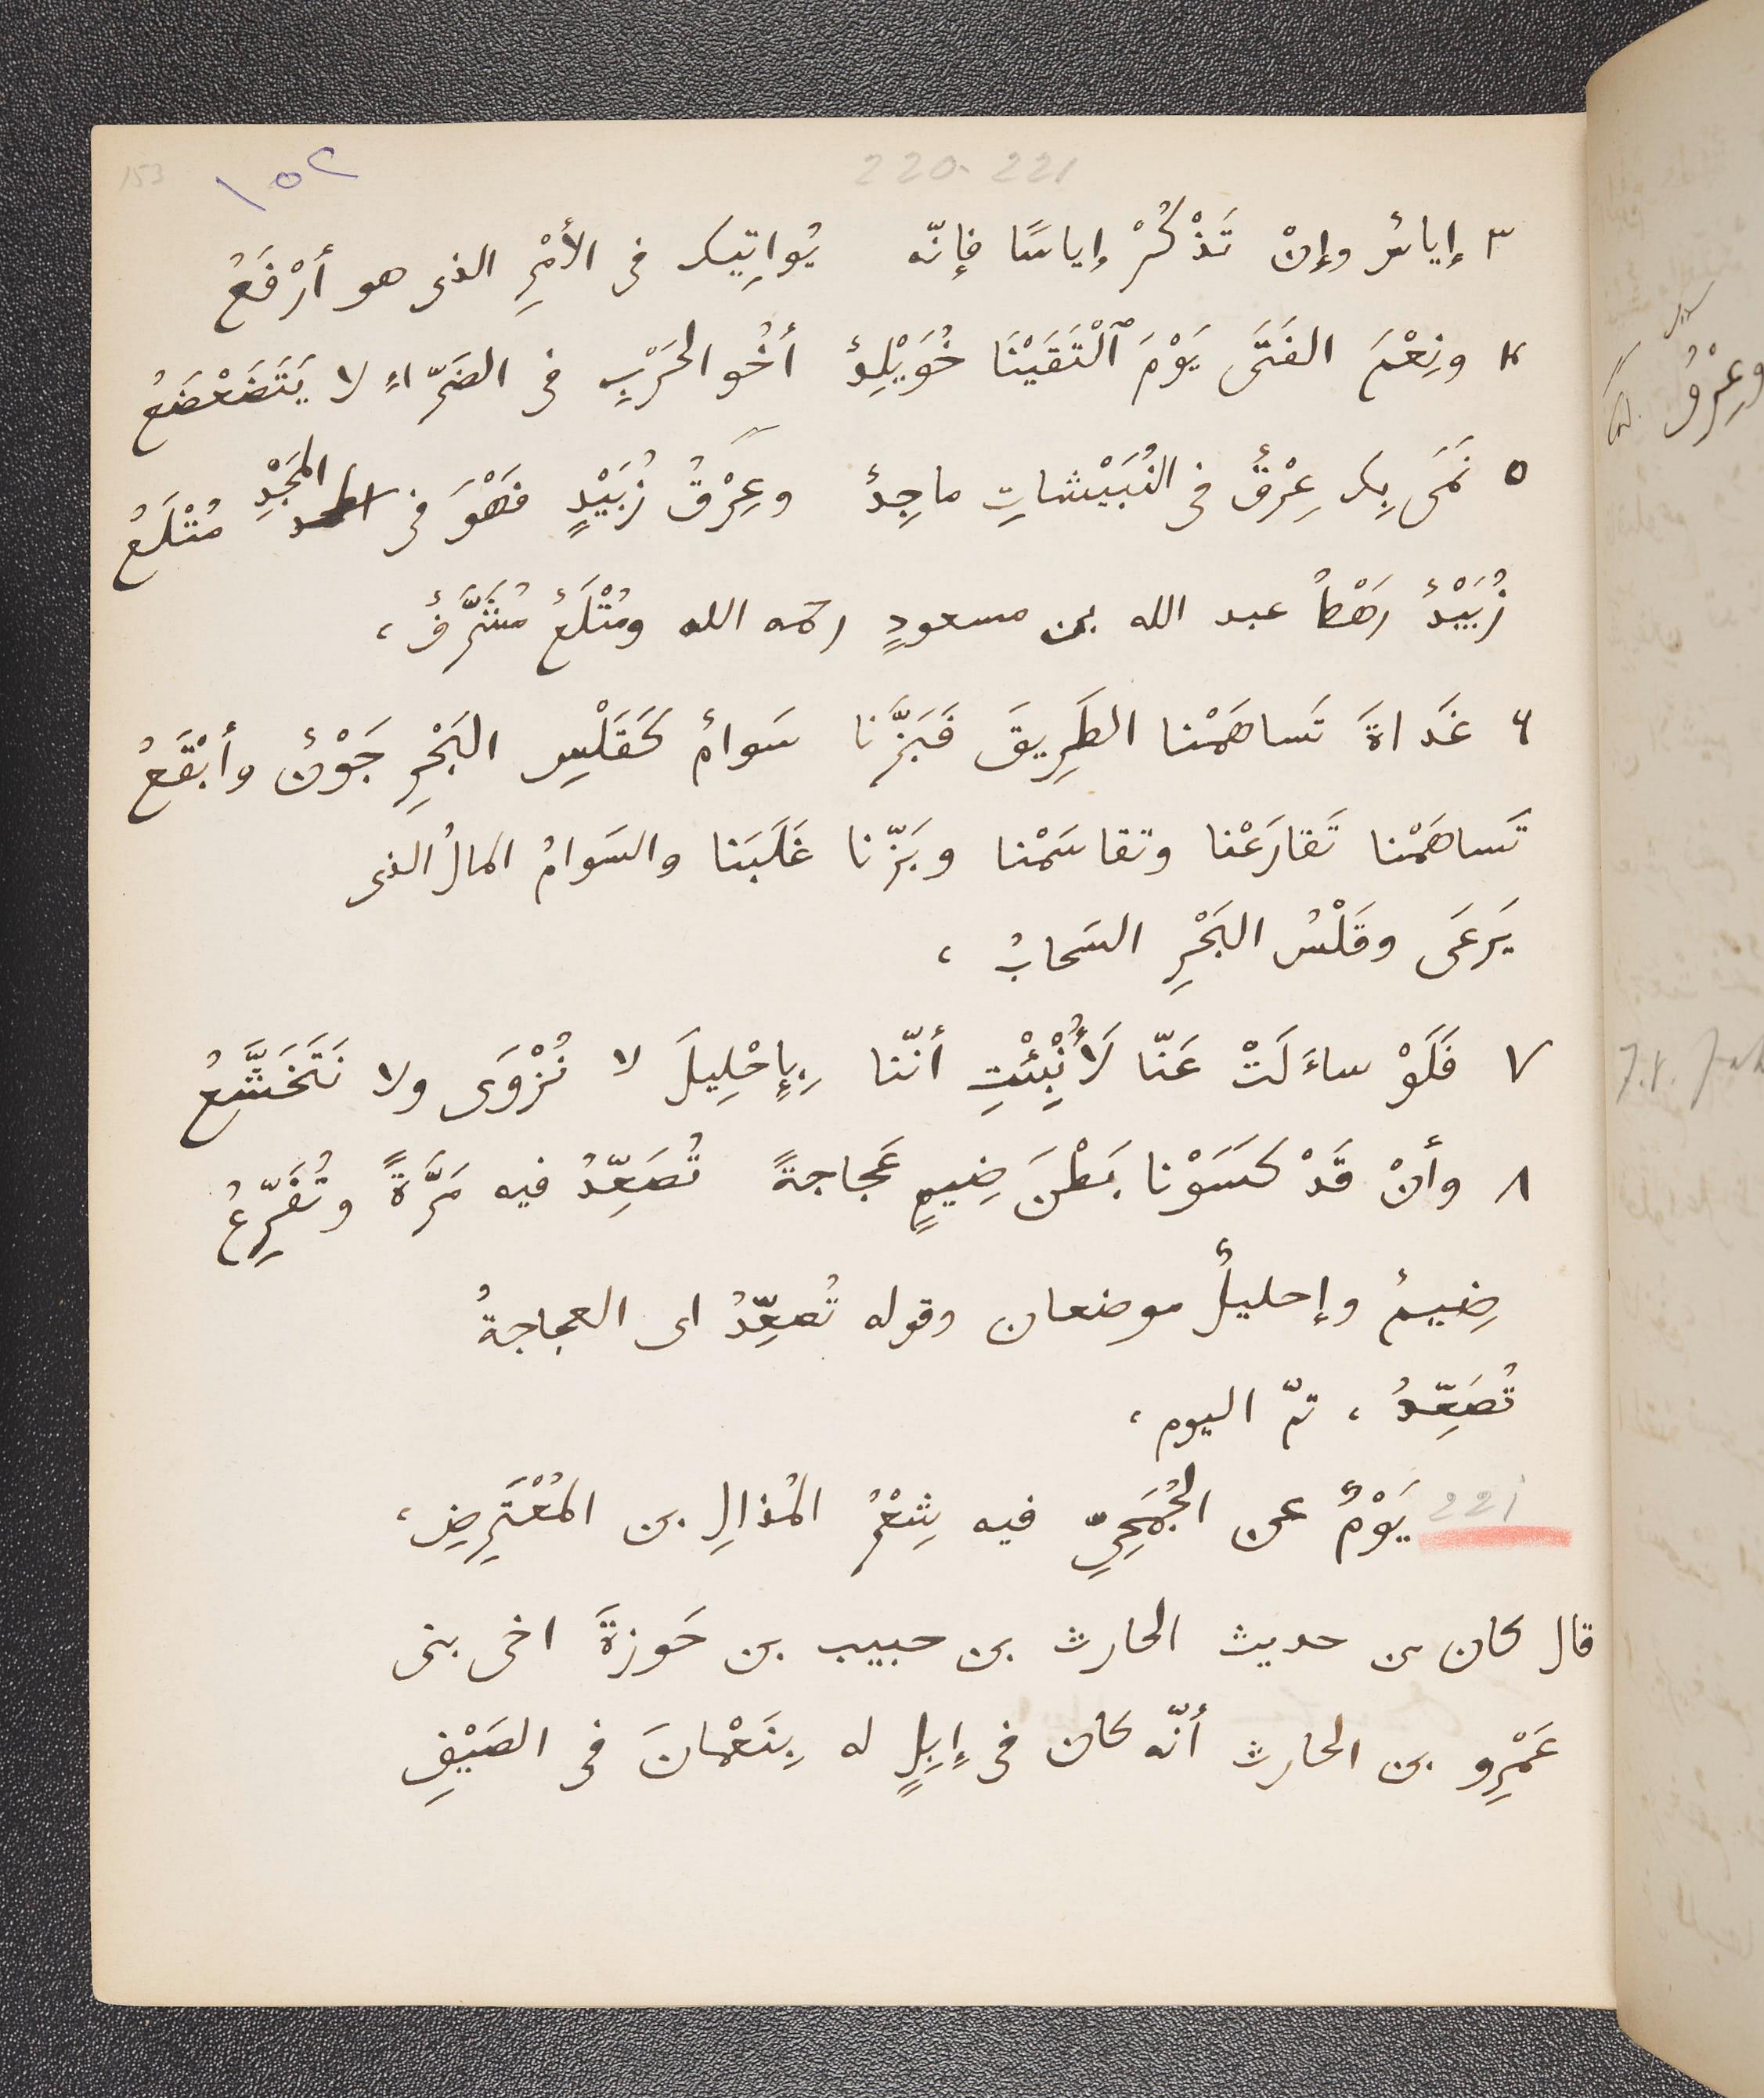 153 ١٥٢ 220-221
٣ إياسٌ وإنْ تَذْكُرْ إياسًا فإنّه يُواتِيك فى الأمْرِ الذى هو أرْفَعُ
٤ ونِعْمَ الفَتَى يَوْمَ ٱلْتَقَيْنَا خُوَيْلِدٌ أخُو الحَرْبِ فى الضَرّاءِ لا يَتَضَعْضَعُ
٥ نَمَى بِك عِرْقٌ فى النُبَيْشاتِ ماجِدٌ وعِرْقُ زُبَيْدٍ فَهْوَ فى المَجْدِ مُتْلَعُ
زُبَيْدٌ رَهْطُ عبد الله بن مسعودٍ رحمه الله ومُتْلَعٌ مُشَرَّفٌ ،
٦ غَداةَ تَساهَمْنا الطَرِيقَ فَبَزَّنا سَوامٌ كَقَلْسِ البَحْرِ جَوْنٌ وأبْقَعُ
تَساهَمْنا تَقارَعْنا وتقاسَمْنا وبَزّنا غَلَبَنا والسَوامُ المالُ الذى
يَرعَى وقَلْسُ البَحْرِ السَحابُ ،
٧ فَلَوْ ساءَلَتْ عَنّا لَأُنْبِئَتِ أنّنا بِإحْلِيلَ لا نُزْوَى ولا نَتَخَشَّعُ
٨ وأنْ قَدْ كَسَوْنا بَطْنَ ضِيمٍ عَجاجةً تُصَعِّدُ فيه مَرَّةً وتُفَرِّعُ
ضِيمٌ وإحليلُ موضعان وقوله تُصعِّدُ اى العجاجةُ
تُصَعِّدُ ، تمّ اليوم ،
221 يَوْمٌ عن الجُمَحِىّ فيه شِعْرُ المُذالِ بن المُعْتَرِضِ ،
قال كان من حديث الحارث بن حبيب بن حَوزةَ اخى بنى
عَمْرِو بن الحارث أنّه كان فى إبِلٍ له بِنَعْمانَ فى الصَيْفِ
وعِرْقُ